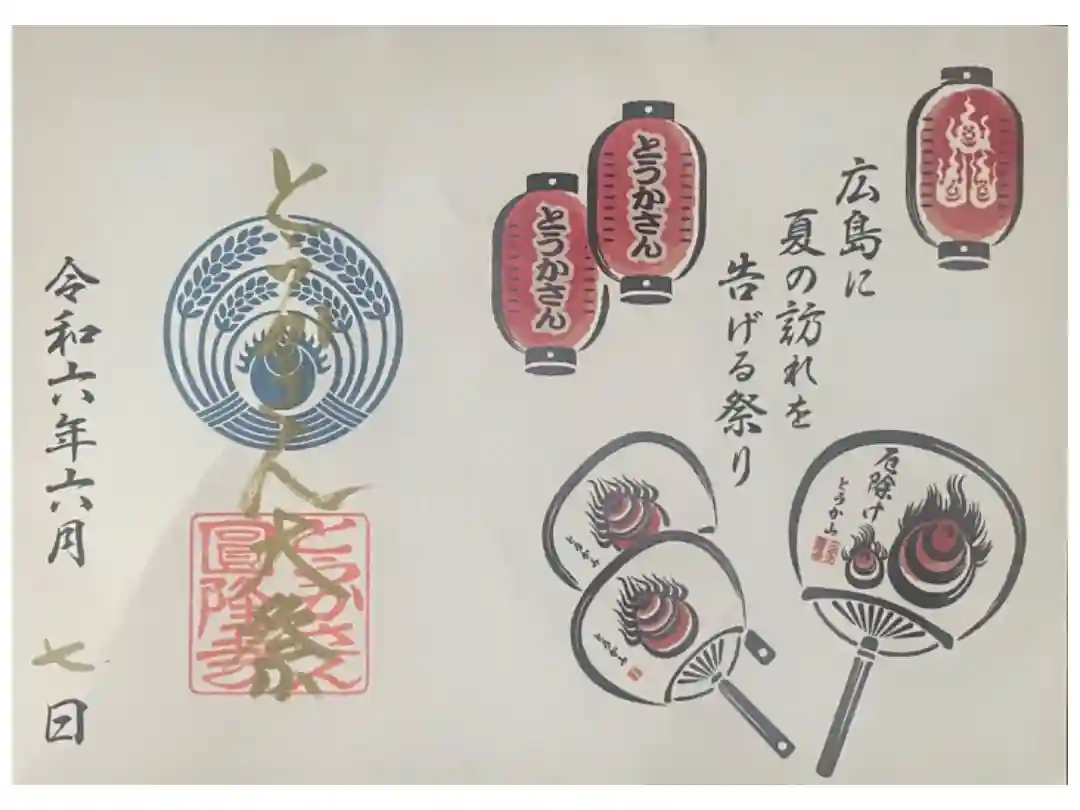 とうかさん
とうかさん
広島に
夏の訪れを
告げる祭り
厄除け
とうか山
とうか山
とうかさん大祭
とうかさん
圓隆寺
令和六年六月 七日